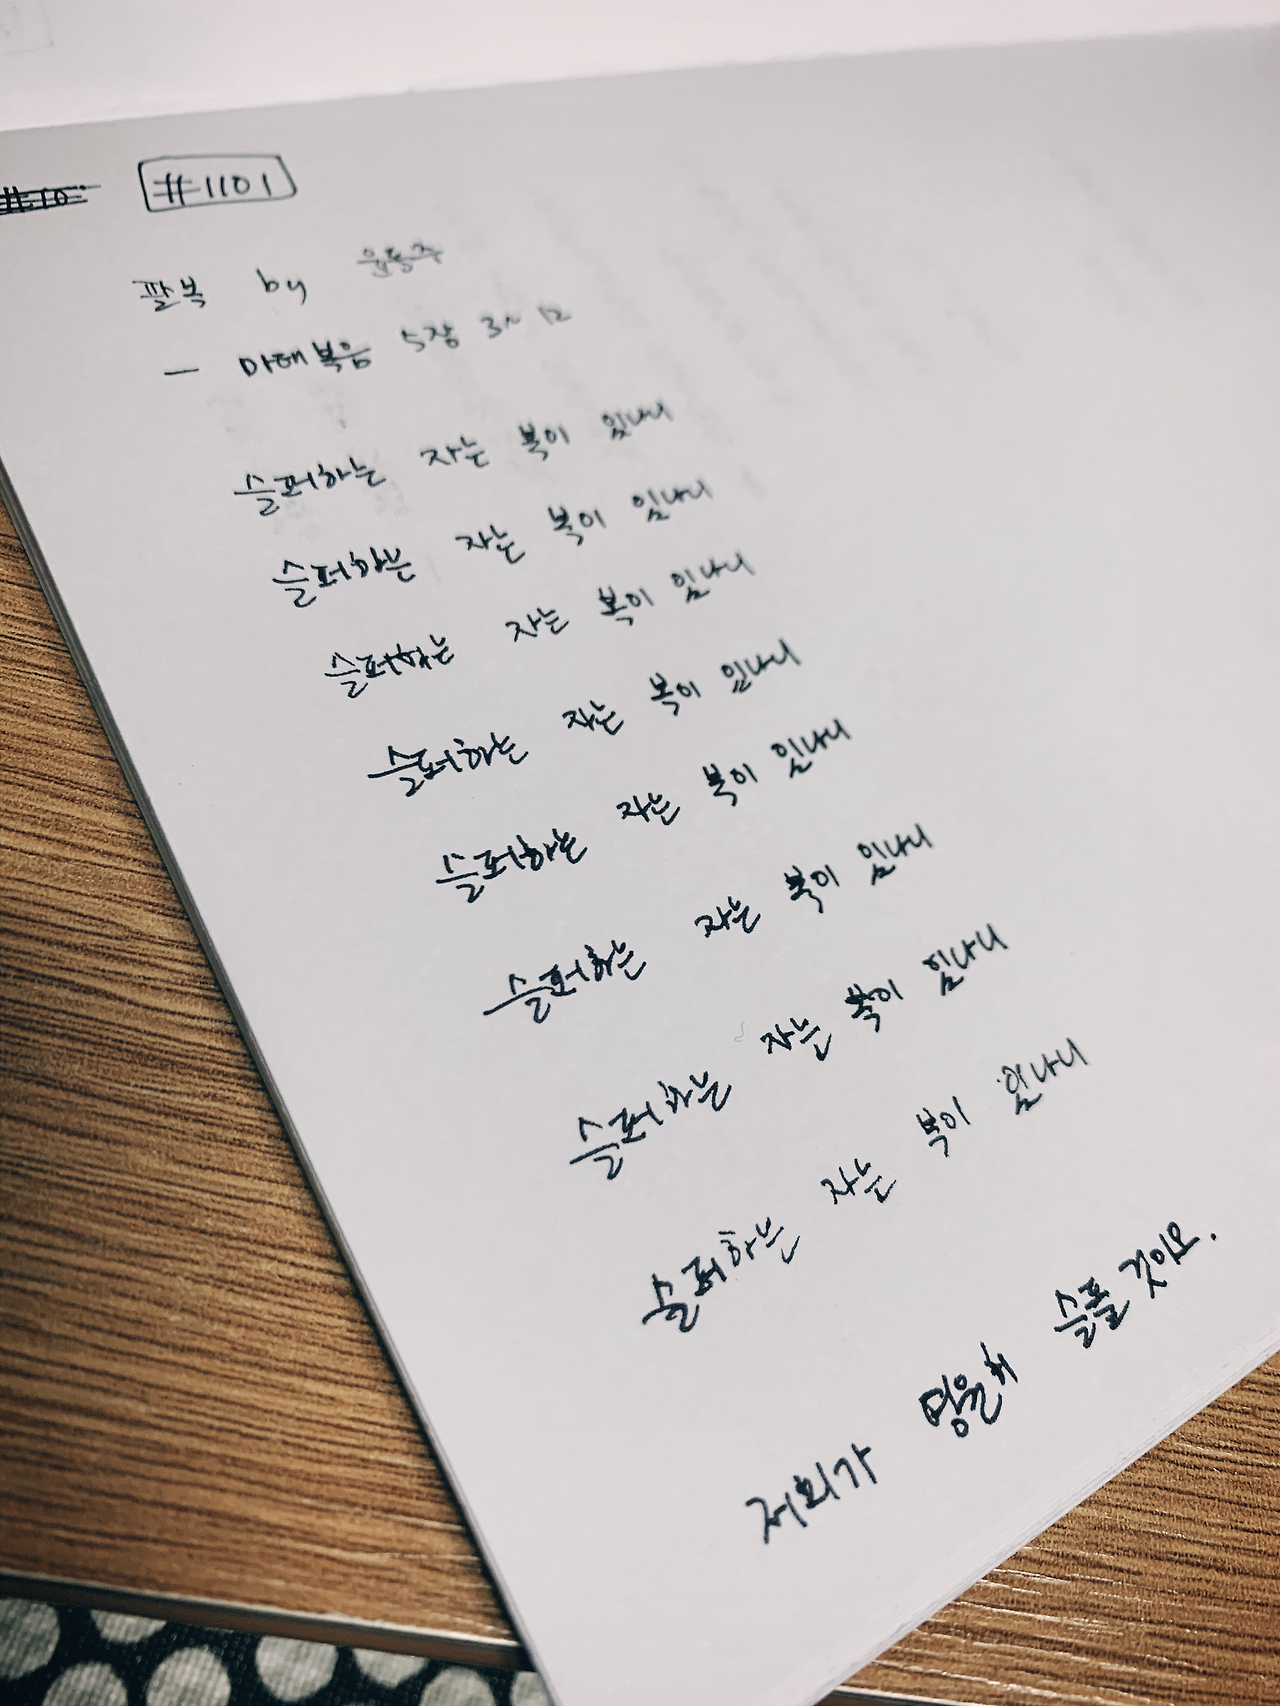 #1101
팔복 by 윤동주
— 마태복음 5장 3~12
슬퍼하는 자는 복이 있나니
슬퍼하는 자는 복이 있나니
슬퍼하는 자는 복이 있나니
슬퍼하는 자는 복이 있나니
슬퍼하는 자는 복이 있나니
슬퍼하는 자는 복이 있나니
슬퍼하는 자는 복이 있나니
슬퍼하는 자는 복이 있나니
저희가 영원히 슬플 것이오.